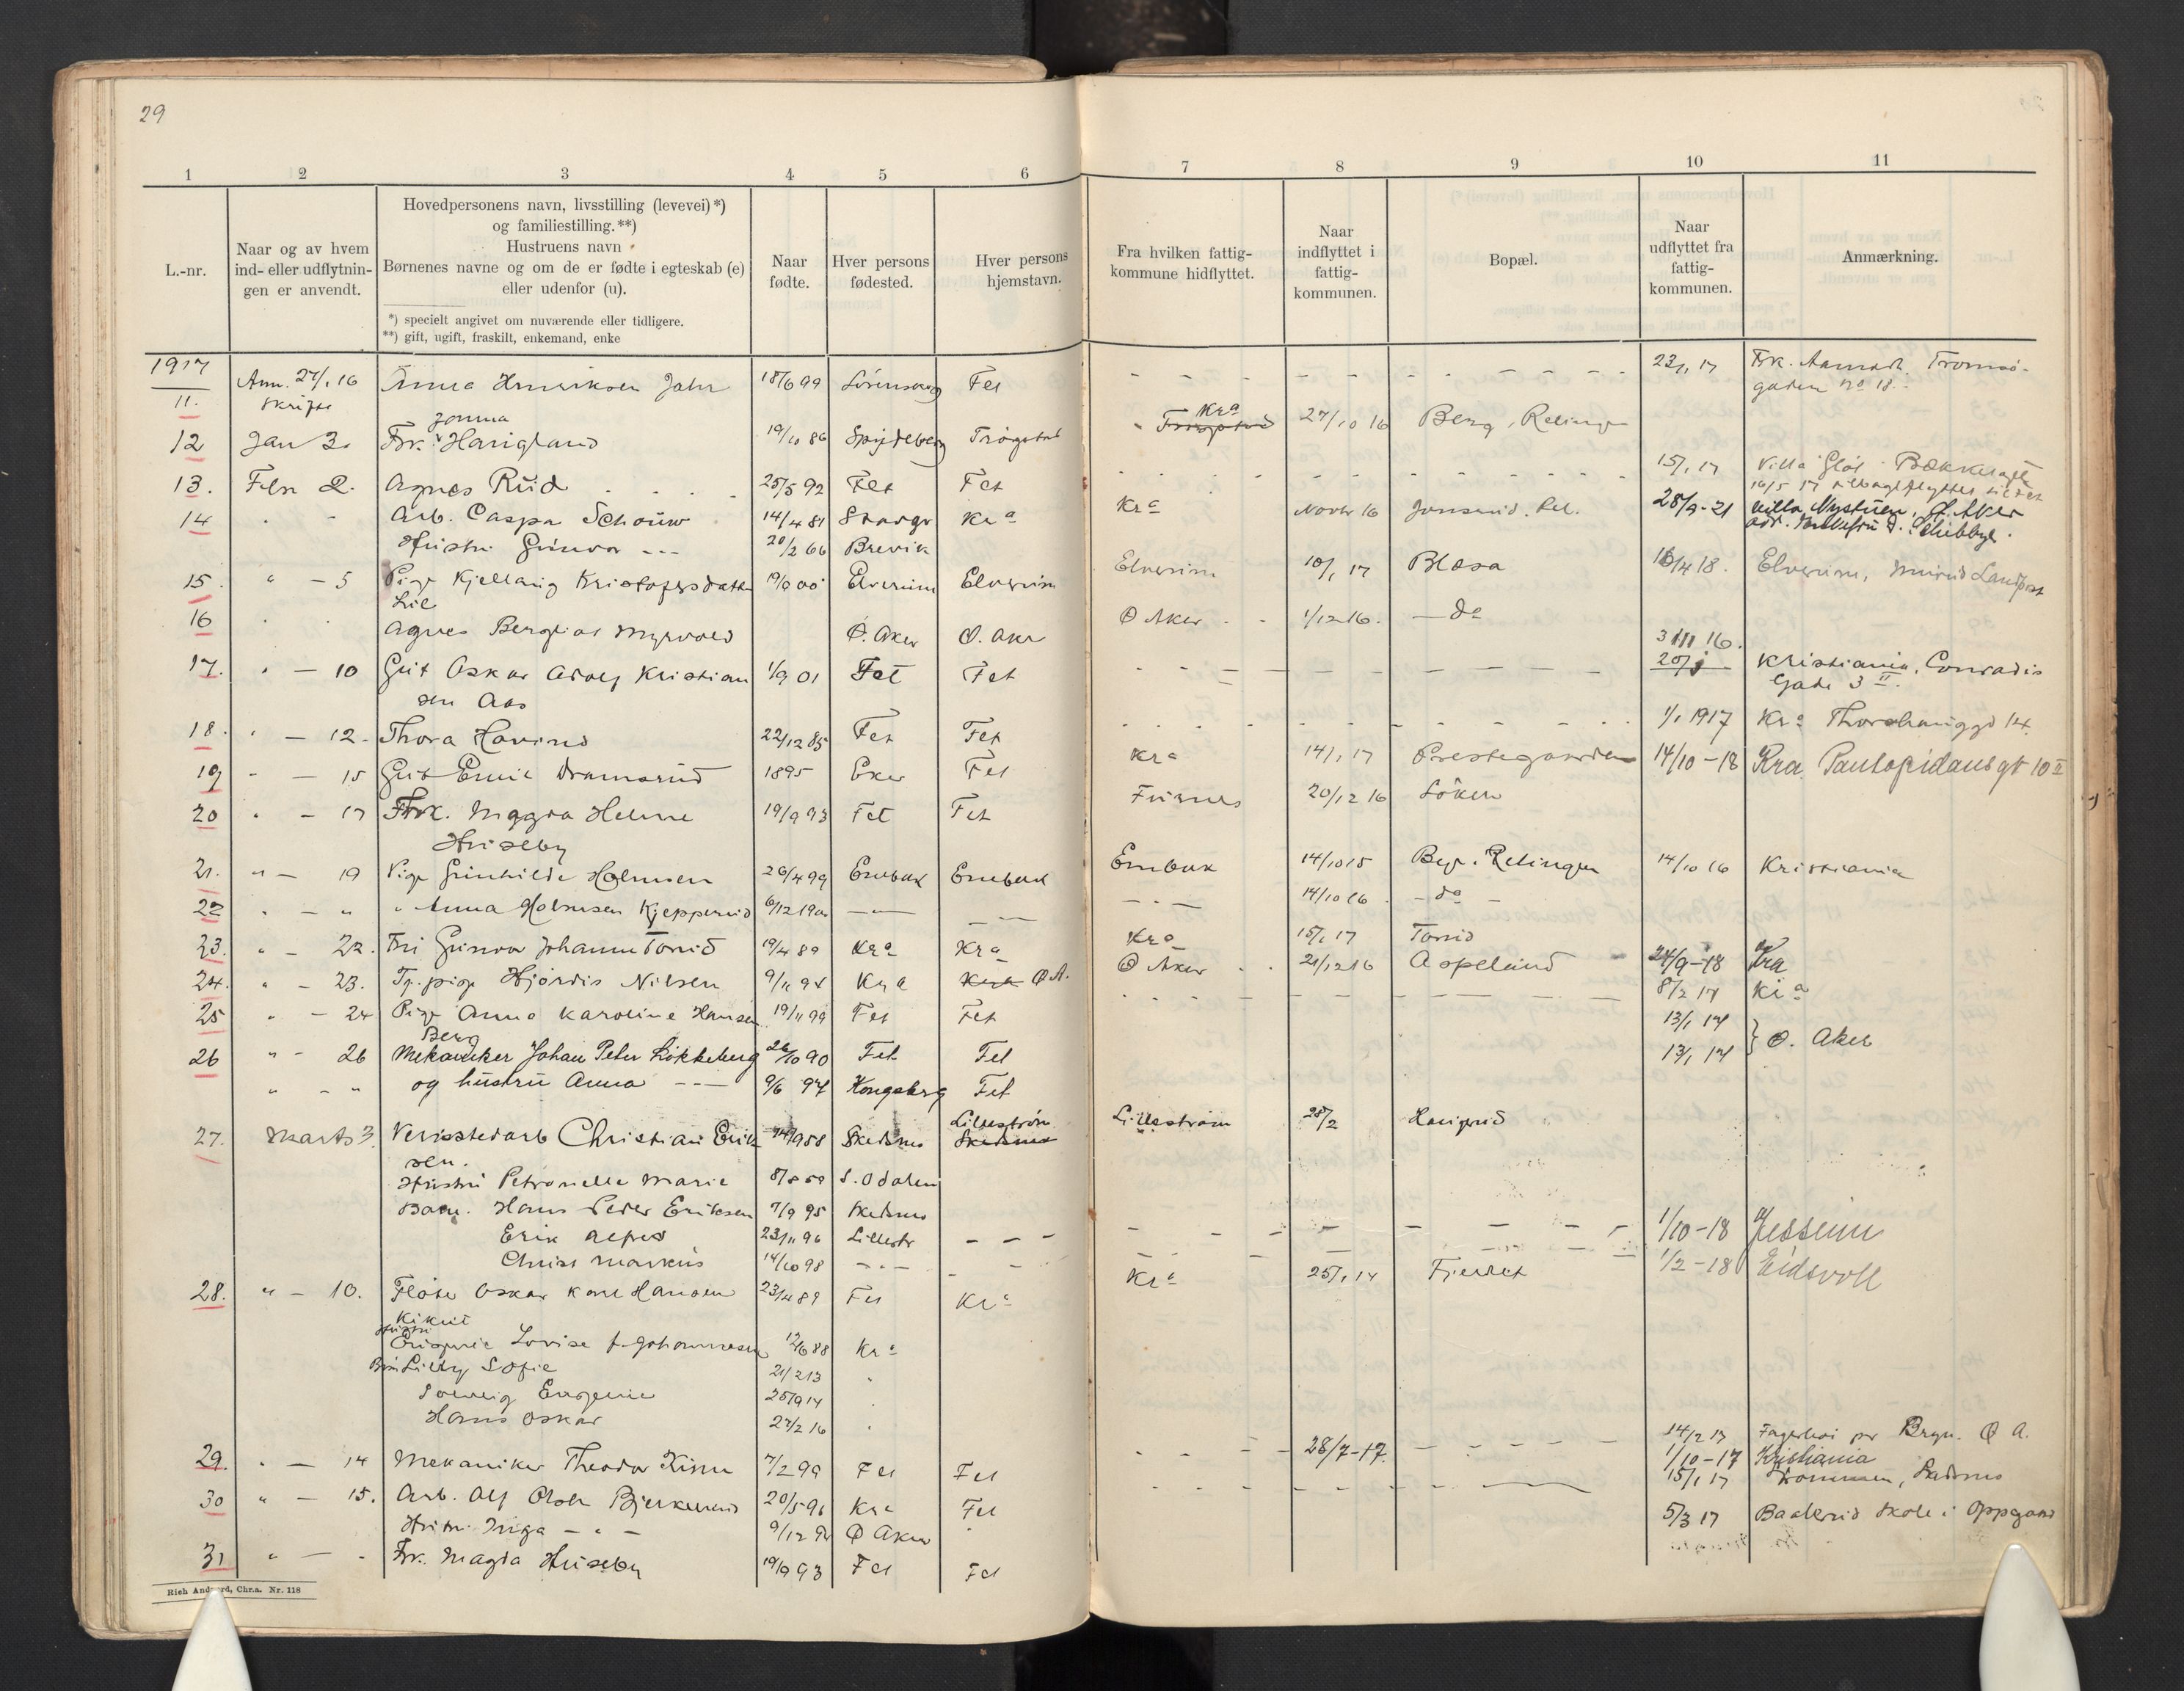 29
1 2 3 4 5 6 7 8 9 10 11
L.-nr.
Naar og av hvem
ind- eller udflytnin-
gen er anvendt.
Hovedpersonens navn, livsstilling (levevei) *)
og familiestilling. **)
Hustruens navn
Børnenes navne og om de er fødte i egteskab (e)
eller udenfor (u).
*) specielt angivet om nuværende eller tidligere.
**) gift, ugift, fraskilt, enkemand, enke
Naar
fødte.
Hver persons
fødested.
Hver persons
hjemstavn.
Fra hvilken fattig-
kommune hidflyttet.
Naar
indflyttet i
fattig-
kommunen.
Bopæl.
Naar
udflyttet fra
fattig-
kommunen.
Anmærkning.
1917
11. Anna Henriksen Jahr 18/6 99 Lørenskog Fet - - - - 23/1 17 Frk. Tromsø-
gaden no 18.
12 Jan 3. Frk. Haugland 19/10 86 Spydeberg Trøgstad Kra 27/10 16 Berg, Relingen
13. Febr 2. Agnes Rud 25/5 92 Fet Fet - - - - 15/1 17 Villa Bækkelaget
14 " - Arb. Caspar Schouw 14/4 81 Kra Kra Novbr 16 28/9-21 Villa Nystuen, Ø. Aker
Hustru Gunvor - - - 20/2 66 Brevik
15. " - 5 Pige Kjellaug Kristofersdatter 19/9 00 Elverum Elverum Elverum 10/1 17 Blæsa 16/4 18. Elverum,
Lie
16 Agnes Bergliot Myrvold Ø. Aker Ø. Aker Ø Aker 1/12 16. - do
3/11 16.
17. " - 10 Gut Oskar Adolf Kristian 1/9 01 Fet Fet - - - - Kristiania, Conradis
sen Aas Gade 3 II.
18. " - 12. Thora Havind 22/12 85 Fet Fet - - - - 1/1 1917 Kra Thorshauggd 14.
19 " - 15 Gut Emil Dramsrud 1895 Eker Fet Kra 14/1 17 Prestegaarden 14/10-18 Kra. Pantopidansgt 10 II
20 " - 17 Frk. Magda Helene 19/9 93 Fet Fet Furnes 20/12 16 Löken
Huseby
21. " - 19 Pige Gunhilde Holmsen 26/4 99 Enebak Enebak Enebak 14/10 15 Relingen 14/10 16 Kristiania
22 " - " " Anna Holmsen Kjepperud 6/12 - " - - " - - " - 14/10 16 - do -
23. " - 22. Fru Gunvor Johanne Torrid 19/4 89 Kra Kra Kra 15/1 17 Torrid
24. " - 23. Tj. pige Hjørdis Nilsen Kra Kra Ø A. Ø Aker 21/12 16 Aspelund 24/9-18 Kra
25 " - 24 Pige Anna Karoline Hansen 19/11 99 Fet Fet - - - - 8/2 17 Kra
Berg
26 " - 26 Mekaniker Johan Peter Løkkeberg 26/10 90 Fet Fet 13/1 17 } Ø. Aker
" - " og hustru Anna - - - 9/6 97 Kongsberg Fet 13/1 17
27. Marts 3. Verkstedarb Christian Erik Skedsmo Lillestrøm Lillestrøm 28/2
sen.
Hustru Petronelle Marie 8/8 59 S. Odalen
Barn. Hans Peder Eriksen 7/9 95 Skedsmo
Erik Alfred 23/11 96 Lillestr - - - 1/10-18 Jessheim
Christ Markus 14/10 98 - " - 1/2-18 Eidsvoll
28. " - 10. Fløter Oskar Karl Hansen 23/4 89 Fet Kra Kra 25/1 17 Fjerdet
Kikut
Hustru Lovise f. Johannesen 12/6 88 Kra
Lilly Sofie 21/2 13 "
Solveig Eugenie 25/9 14
Hans Oskar 27/2 16 "
29. " - 14 Mekaniker Theodor 7/2 99 Fet Fet - - 28/7-17. - - - 14/2 17 pr Bryn. Ø A.
1/10-17 Kristiania
30 " - 15. Arb. Alf Olsen Bjerkerud 20/5 96 Kra Fet - - - 15/1 17 Strommen, Skedsmo
Hustru Inga - " - Ø Aker
31 " - - Frk. Magda Huseby 19/9 93 Fet Fet 5/3 17 Skole i Oppegaard
Rich Andvord, Chr.a. Nr. 118